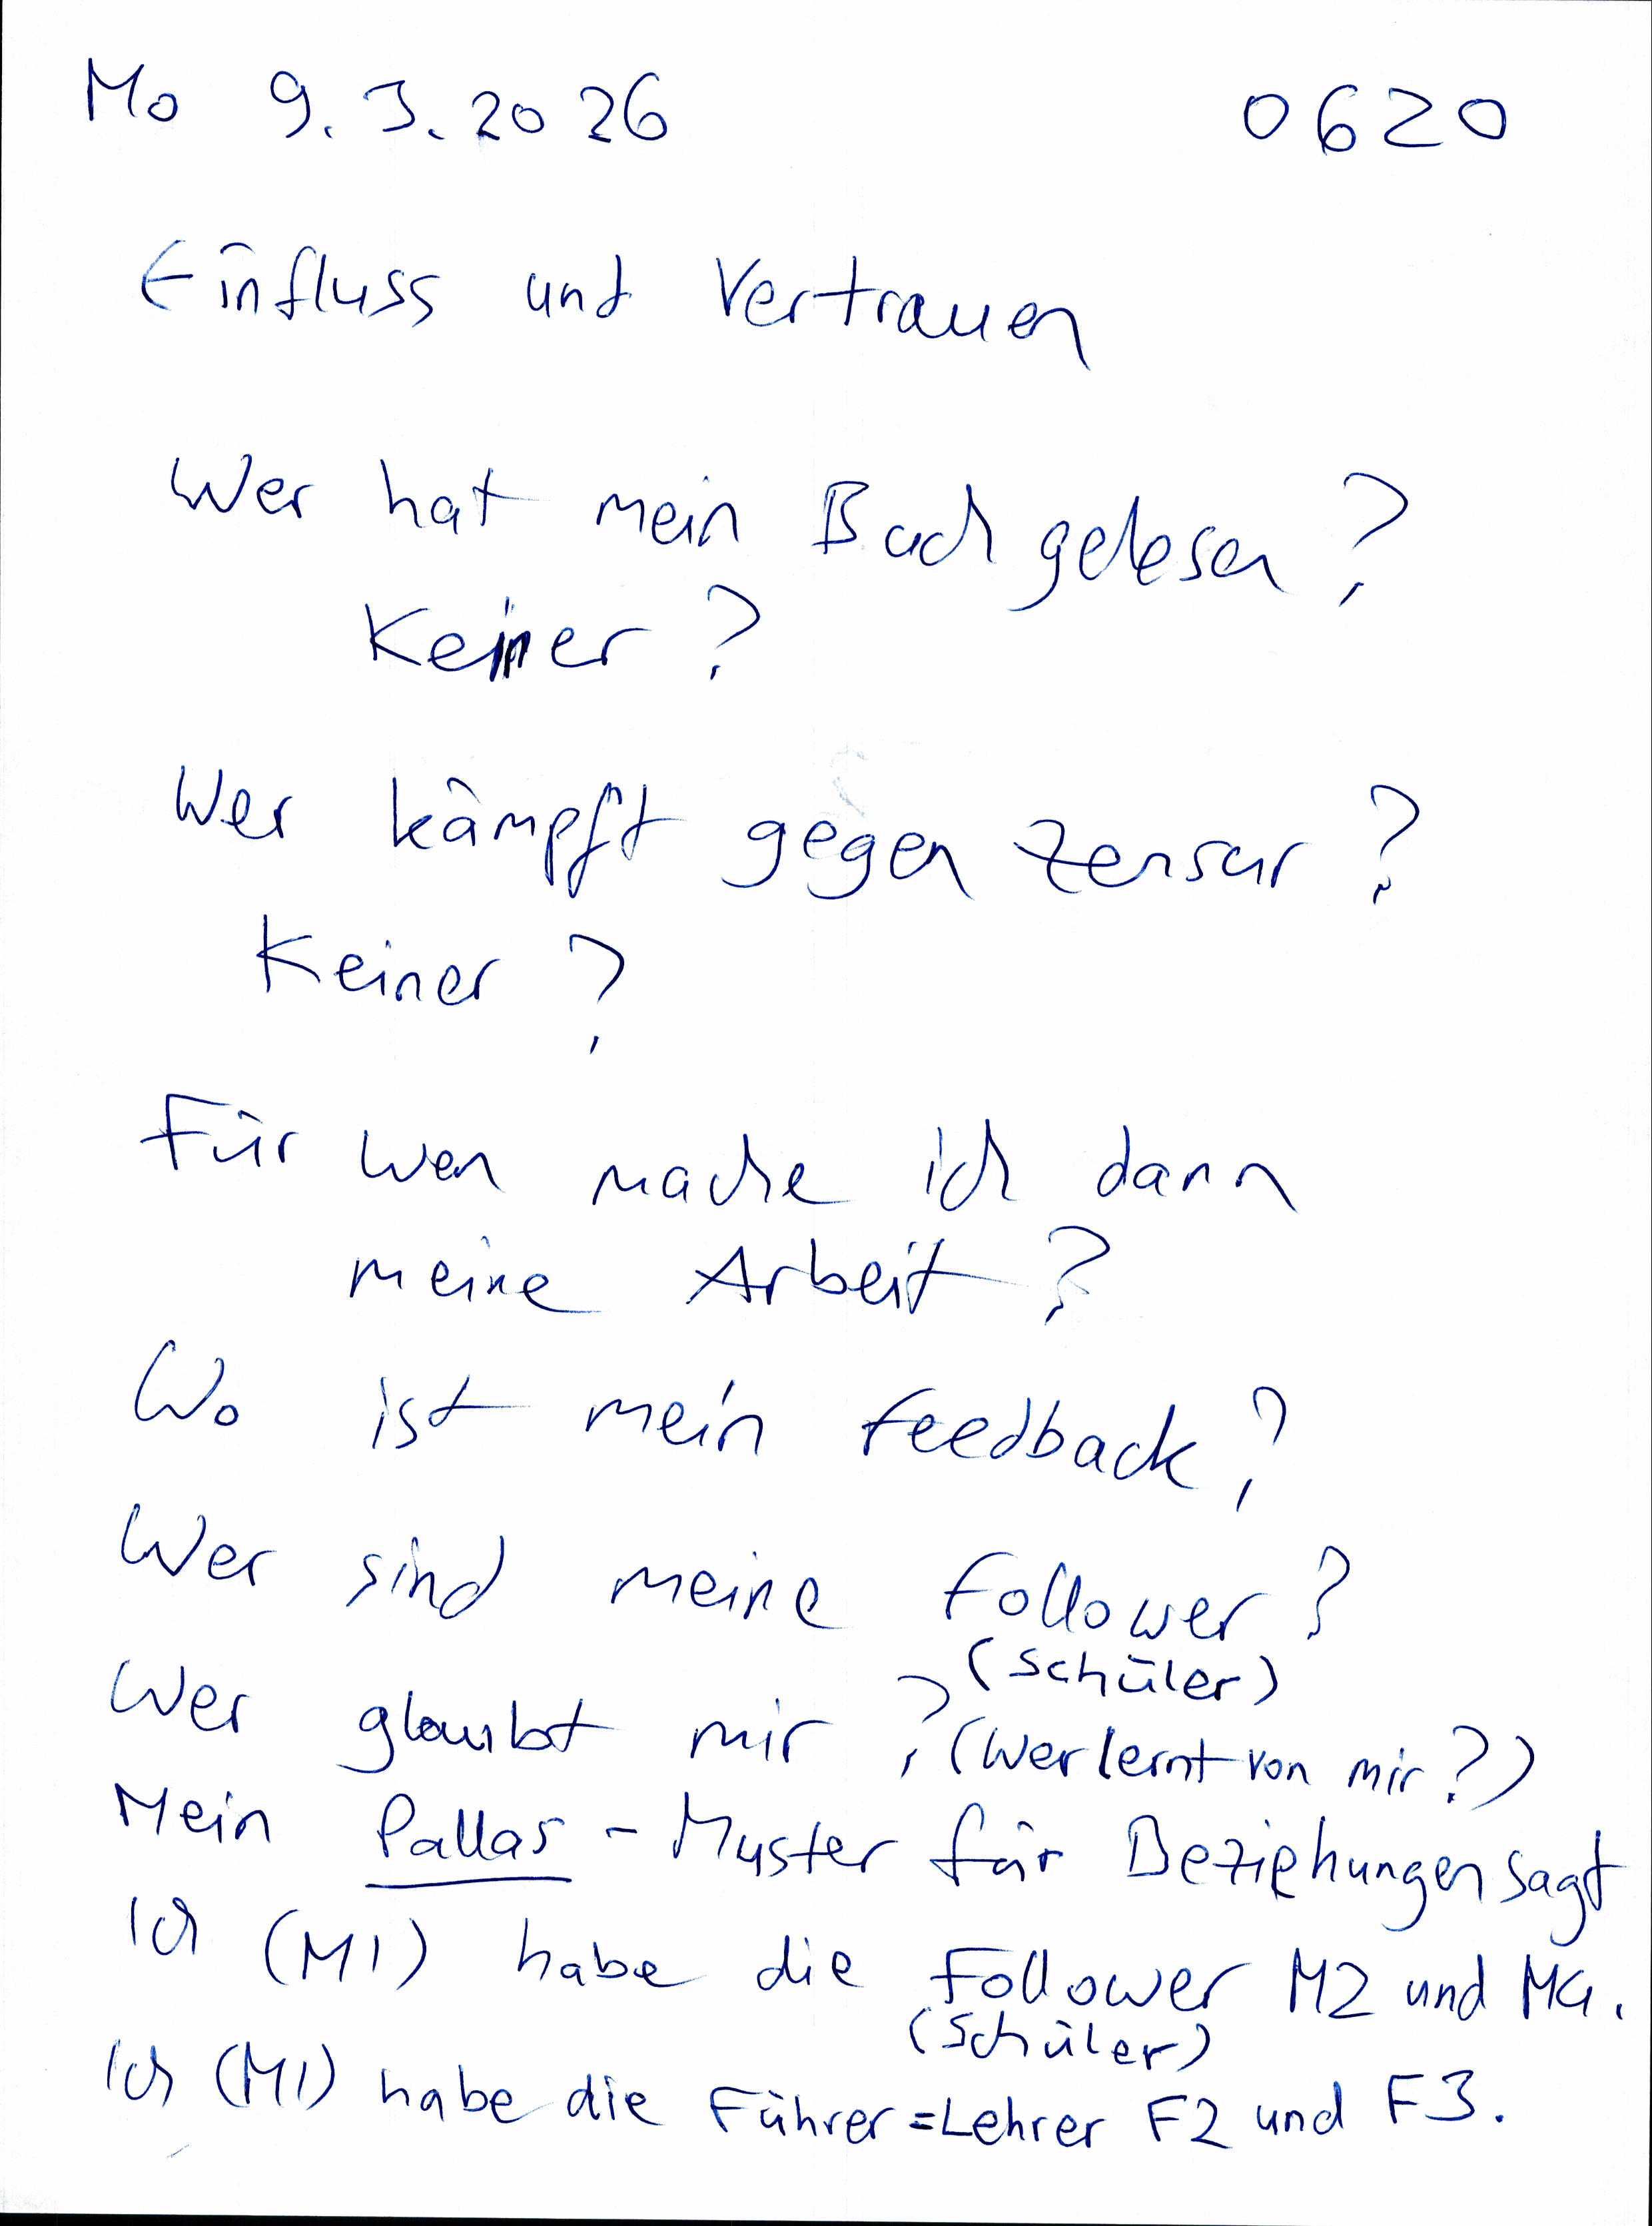 Mo 9.3.2026 0620
Einfluss und Vertrauen
Wer hat mein Buch gelesen?
Keiner?
Wer kämpft gegen Zensur?
Keiner?
Für wen mache ich dann
meine Arbeit?
Wo ist mein Feedback?
Wer sind meine Follower?
(Schüler)
Wer glaubt mir? (Wer lernt von mir?)
Mein Pallas-Muster für Beziehungen sagt
Ich (M1) habe die Follower M2 und M4.
(Schüler)
Ich (M1) habe die Führer=Lehrer F2 und F3.